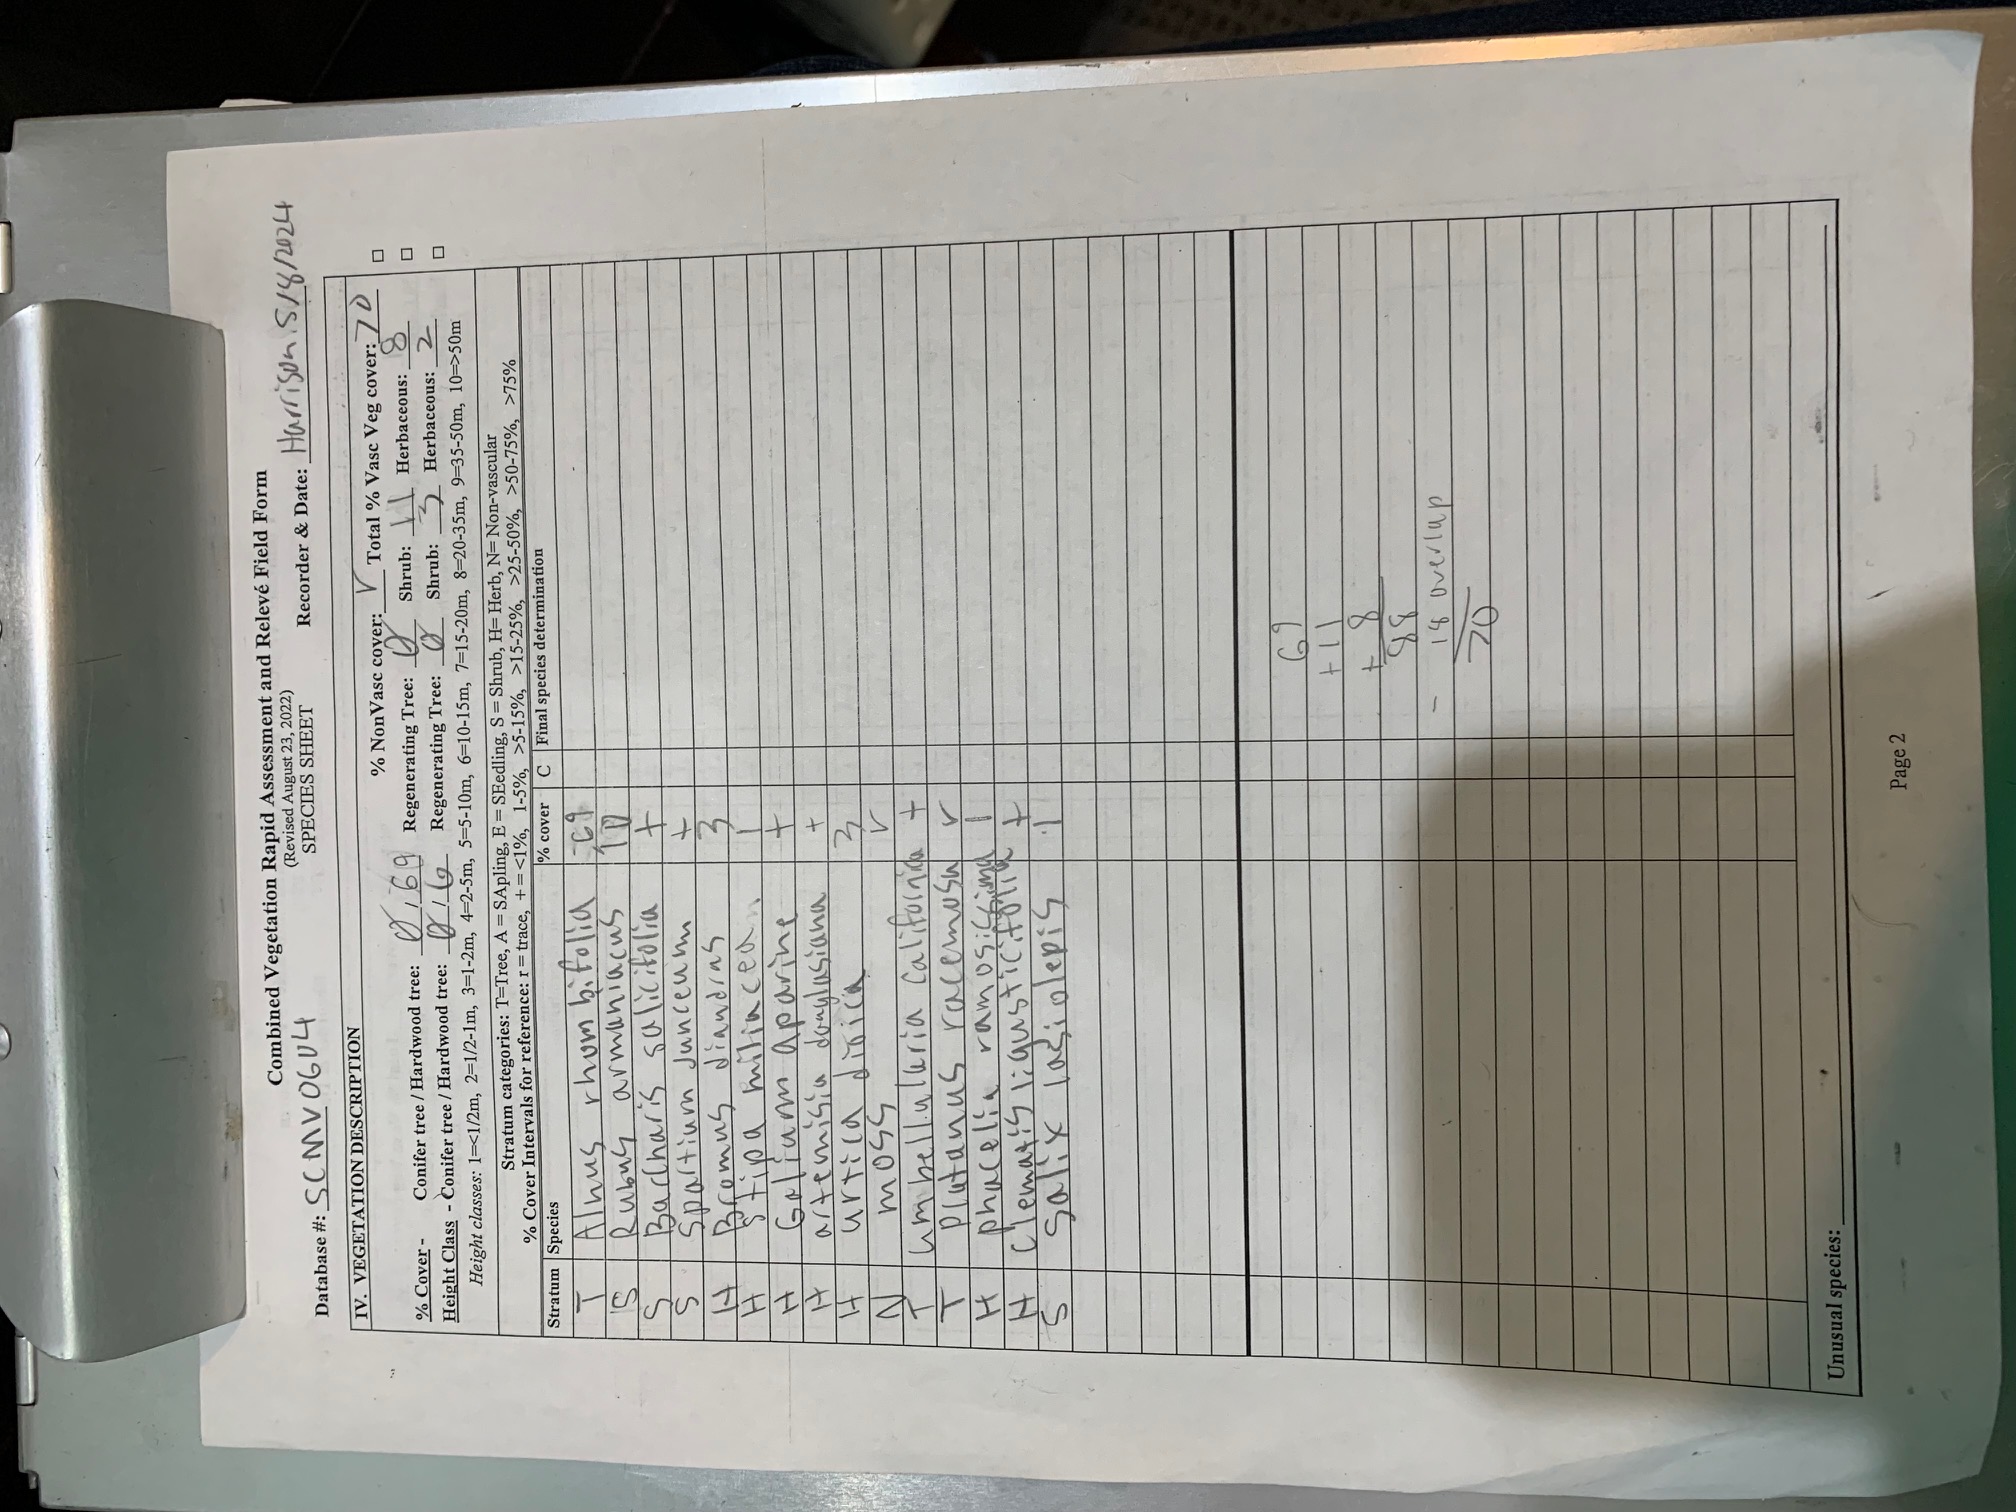 Combined Vegetation Rapid Assessment and Relevé Field Form
(Revised August 23, 2022)
SPECIES SHEET
Database #: SCMV06U4 Recorder & Date: Harrison 5/8/2024
IV. VEGETATION DESCRIPTION
% NonVasc cover: r Total % Vasc Veg cover: 70 □
% Cover - Conifer tree / Hardwood tree: Ø / 69 Regenerating Tree: Ø Shrub: 11 Herbaceous: 8 □
Height Class - Conifer tree / Hardwood tree: Ø / 6 Regenerating Tree: Ø Shrub: 3 Herbaceous: 2 □
Height classes: 1=<1/2m, 2=1/2-1m, 3=1-2m, 4=2-5m, 5=5-10m, 6=10-15m, 7=15-20m, 8=20-35m, 9=35-50m, 10=>50m
Stratum categories: T=Tree, A = SApling, E = SEedling, S = Shrub, H= Herb, N= Non-vascular
% Cover Intervals for reference: r = trace, + = <1%, 1-5%, >5-15%, >15-25%, >25-50%, >50-75%, >75%
Stratum Species % cover C Final species determination
T Alnus rhombifolia 69
S Rubus armaniacus 10
S Baccharis salicifolia +
S Spartium junceum +
H Bromus diandras 3
H Stipa miliacea 1
H Galium aparine +
H artemisia douglasiana +
H urtica dioica 3
N moss r
T umbellularia californica +
T platanus racemosa r
H phacelia ramosissima 1
H Clematis ligusticifolia +
S Salix lasiolepis 1
69
+11
+8
88
- 18 overlap
70
Unusual species:
Page 2